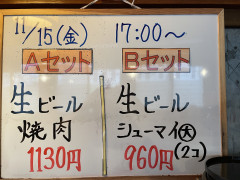 11/15(金) 17:00〜
Aセット
生ビール
焼肉
1130円
Bセット
生ビール
シューマイ大
(2コ)
960円